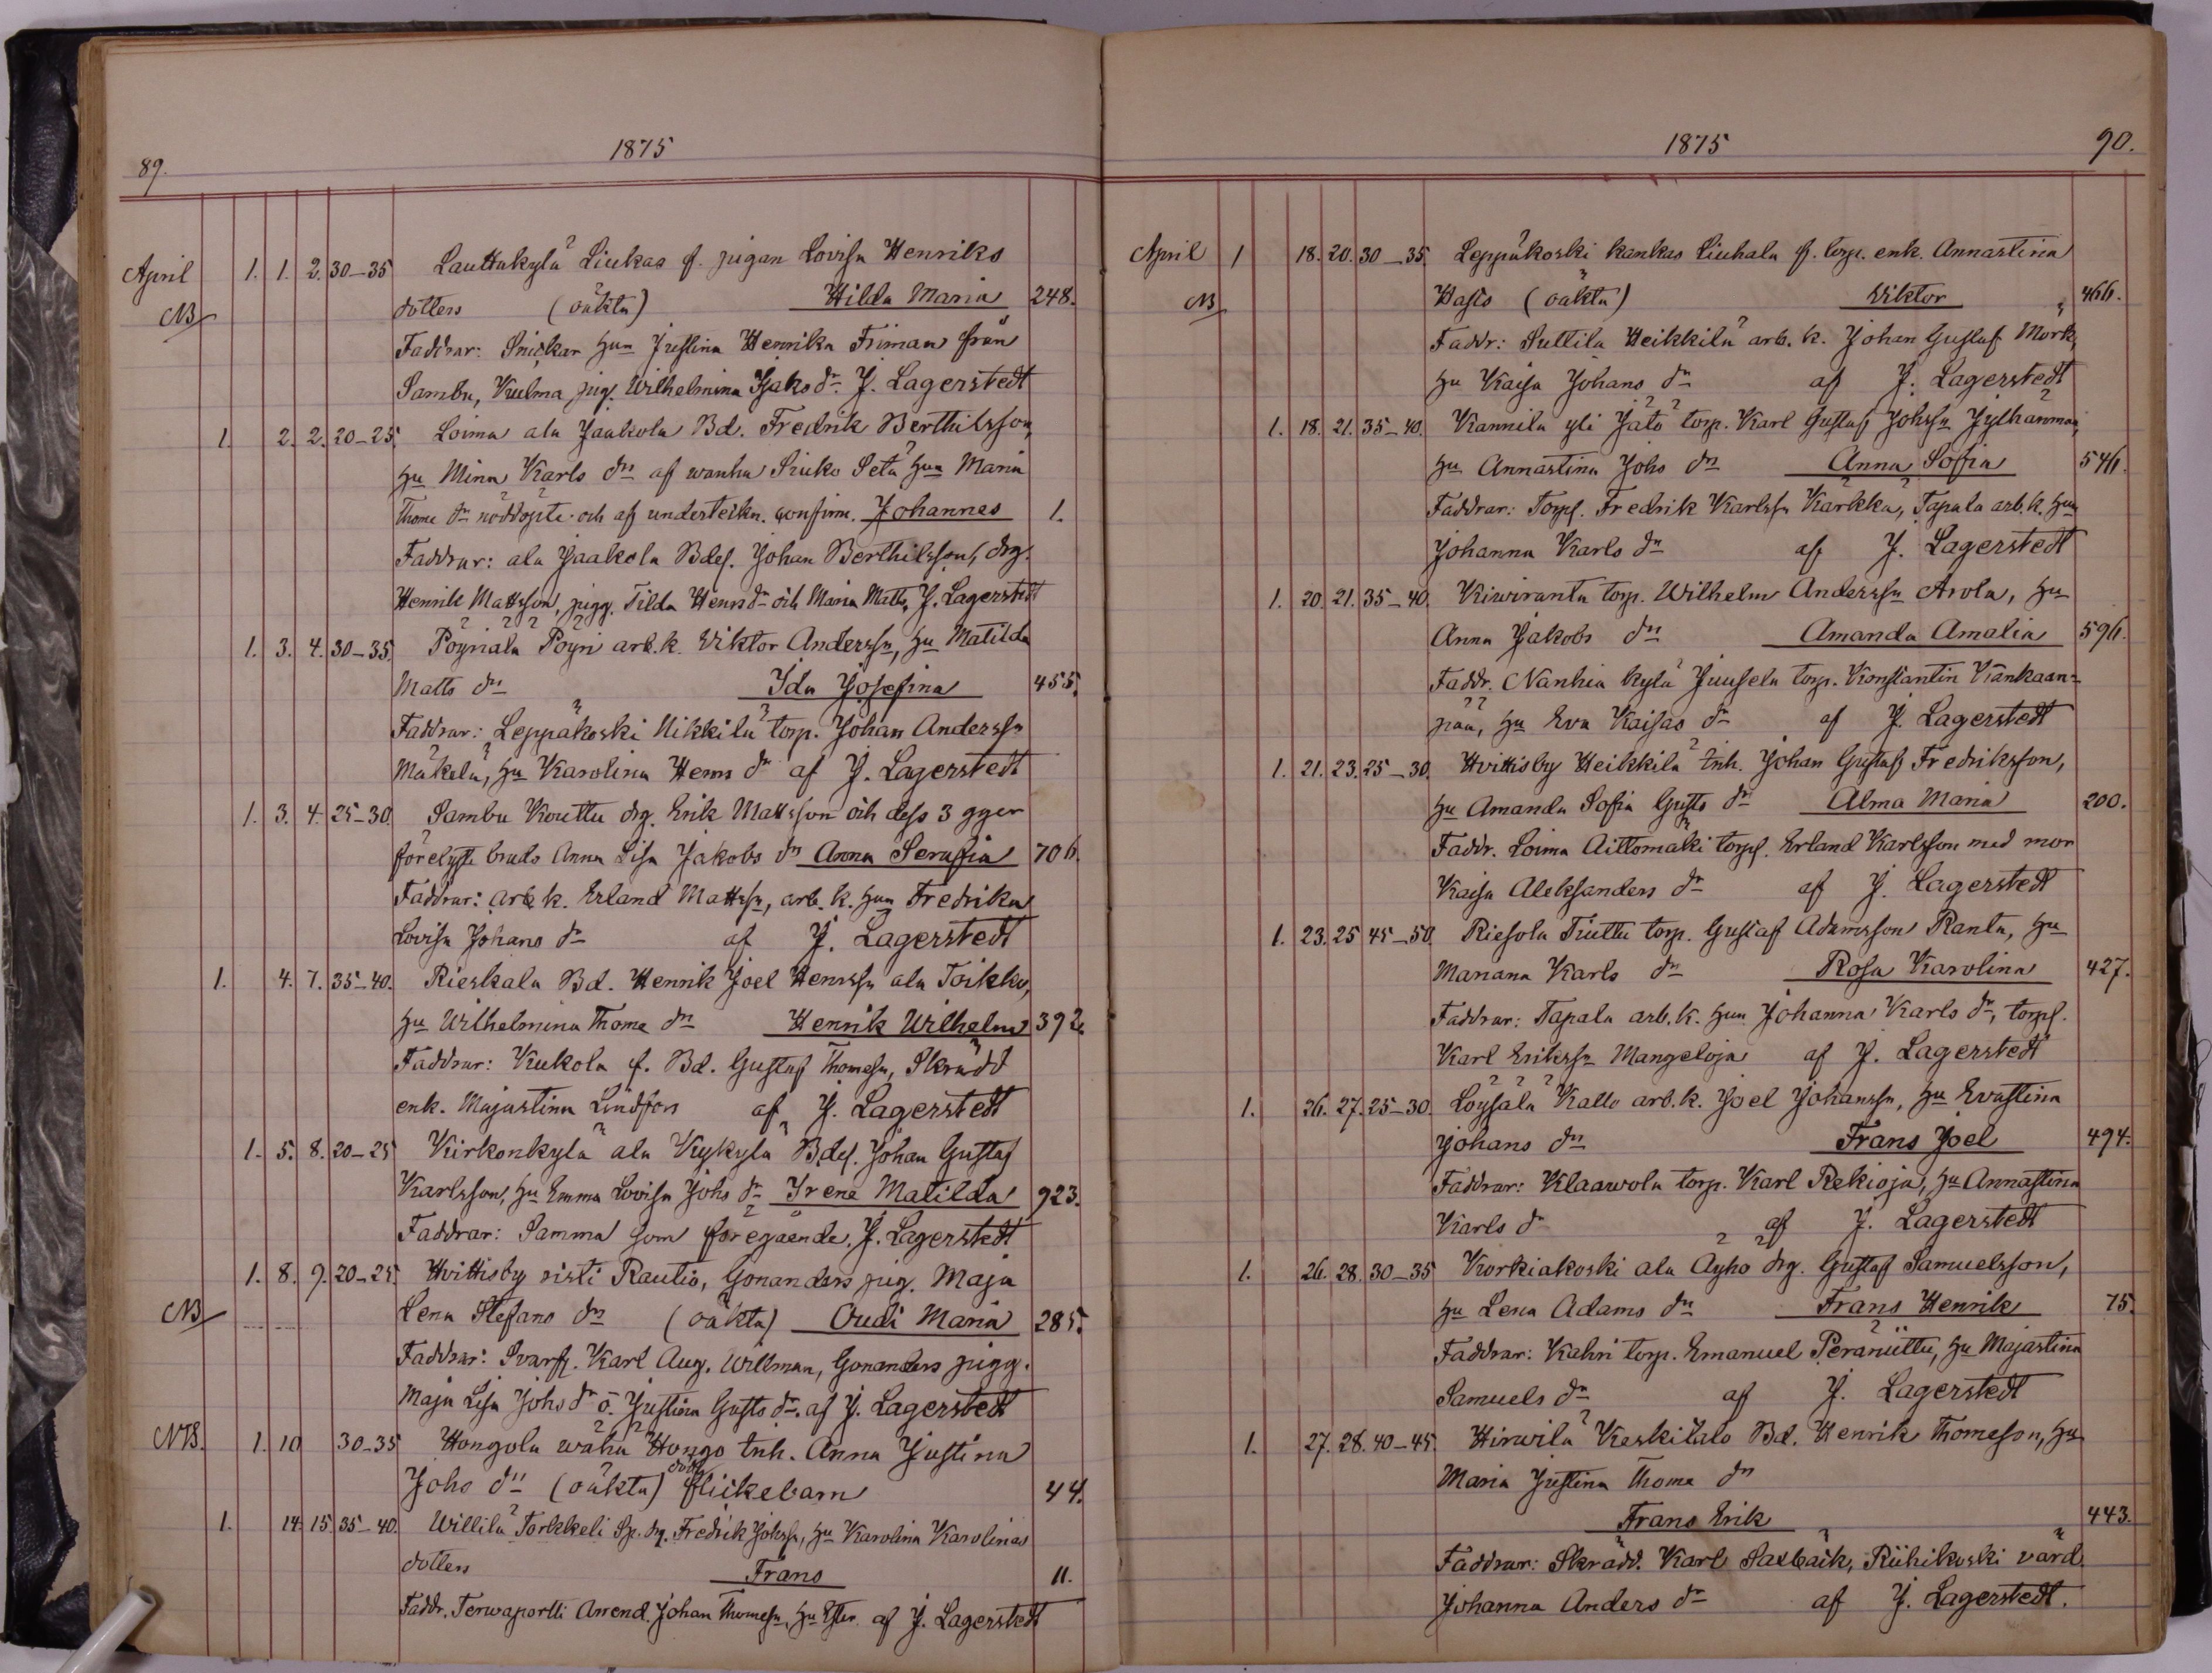 89.
1875
April 1. 1. 2. 30-35 Lauttakylä Liukas f. pigan Lovisa Henriks
NB dotters (oäkta) Hilda Maria 248.
Faddrar: Snickar hun Justina Henrika Friman från
Sambu, Kulma pig. Wilhelmina Isaks dr J. Lagerstedt
1. 2. 2. 20-25. Loima ala Jaakola Bd. Fredrik Berthilsson,
hu Mina Karls dr af wanha Siuko Setä hun Maria
Thome dr nöddöpte och af underteckn. confirm. Johannes 1.
Faddrar: ala Jaakola Bdes. Johan Berthilsson, drg.
Henrik Mattsson, pigg. Tilda Henrs dr och Maria Matts, J. Lagerstedt
1. 3. 4. 30-35. Pöyriälä Pöyri arb.k. Viktor Anderssn, hu Matilda
Matts dr Ida Josefina 455.
Faddrar: Leppäkoski Nikkilä torp. Johan Anderssn
Mäkelä, hu Karolina Henrs dr af J. Lagerstedt
1. 3. 4. 25-30. Sambu Kouttu drg. Erik Mattsson och dess 3 gger
förelyste bruds Anna Lisa Jakobs dr Anna Serafia 706.
Faddrar: arb.k. Erland Mattssn, arb.k. hun Fredrika
Lovisa Johans dr af J. Lagerstedt
1. 4. 7. 35-40. Rieskala Bd. Henrik Joel Henrssn ala Toikku,
hu Wilhelmina Thome dr Henrik Wilhelm 392
Faddrar: Kukola f. Bd. Gustaf Thomesn, Skrädd
enk. Majastina Lindfors af J. Lagerstedt
1. 5. 8. 20-25 Kirkonkylä ala Kykylä Bdes. Johan Gustaf
Karlsson, hu Emma Lovisa Johs dr Irene Matilda 923.
Faddrar: Samma som föregående. J. Lagerstedt
1. 8. 9. 20-25. Hvittisby risti Rautio, Gonanders pig. Maja
NB Lena Stefans dr (oäkta) Oudi Maria 285.
Faddrar: Svarf. Karl Aug. Willman, Gonanders pigg.
Maja Lisa Johs dr o. Justina Gusts dr. af J. Lagerstedt
NB. 1. 10 30-35 Hongola wähä Hongo tnh. Anna Justina
Johs dr (oäkta) dödf flickebarn 44.
1. 14. 15. 35-40. Willilä Torkkeli Sp. drg. Fredrik Johssn, hu Karolina Karolinas
dotters Frans 11.
Faddr. Terwaportti Arrend. Johan Thomesn, hu Ester af J. Lagerstedt
1875
90.
April 1 18. 20. 30-35. Leppäkoski kankas Liuhala f. torp. enk. Annastina
NB Hasis (oäkta) Viktor 466.
Faddr: Suttila Heikkilä arb. k. Johan Gustaf Mörk,
hu Kaisa Johans dr af J. Lagerstedt
1. 18. 21. 35-40. Kannila yli Jätö torp. Karl Gustaf Johssn Jylhänmaa,
hu Annastina Johs dr Anna Sofia 546.
Faddrar: Torps. Fredrik Karlssn Kärkkä, Tapala arb.k. hun
Johanna Karls dr af J. Lagerstedt
1. 20. 21. 35-40. Kiwiranta torp. Wilhelm Anderssn Arola, hu
Anna Jakobs dr Amanda Amalia 596.
Faddr. Nanhia kylä Juusela torp. Konstantin Kankaan-
pää, hu Eva Kaisas dr af J. Lagerstedt
1. 21. 23. 25-30. Hvittisby Heikkilä tnh. Johan Gustaf Fredriksson,
hu Amanda Sofia Gusts dr Alma Maria 200.
Faddr. Loima Aittomäki torps. Erland Karlsson med mor
Kaisa Aleksanders dr af J. Lagerstedt
1. 23. 25 45-50. Riesola Tiuttu torp. Gustaf Adamsson Ranta, hu
Mariana Karls dr Rosa Karolina 427.
Faddrar: Tapala arb.k. hun Johanna Karls dr, torps.
Karl Erikssn Mangeloja af J. Lagerstedt
1. 26. 27. 25-30. Löysälä Kallo arb.k. Joel Johanssn, hu Evastina
Johans dr Frans Joel 494.
Faddrar: Klaawola torp. Karl Rekioja, hu Annastina
Karls dr af J. Lagerstedt
1. 26. 28. 30-35 Korkiakoski ala Äyhö drg. Gustaf Samuelsson,
hu Lena Adams dr Frans Henrik 75.
Faddrar: Kahri torp. Emanuel Peräniittu, hu Majastina
Samuels dr af J. Lagerstedt
1. 27. 28. 40-45 Hirwilä Keskitalo Bd. Henrik Thomesson, hu
Maria Justina Thome dr
Frans Erik 443.
Faddrar: Skrädd. Karl Saxbäck, Riihikoski värd.
Johanna Anders dr af J. Lagerstedt.